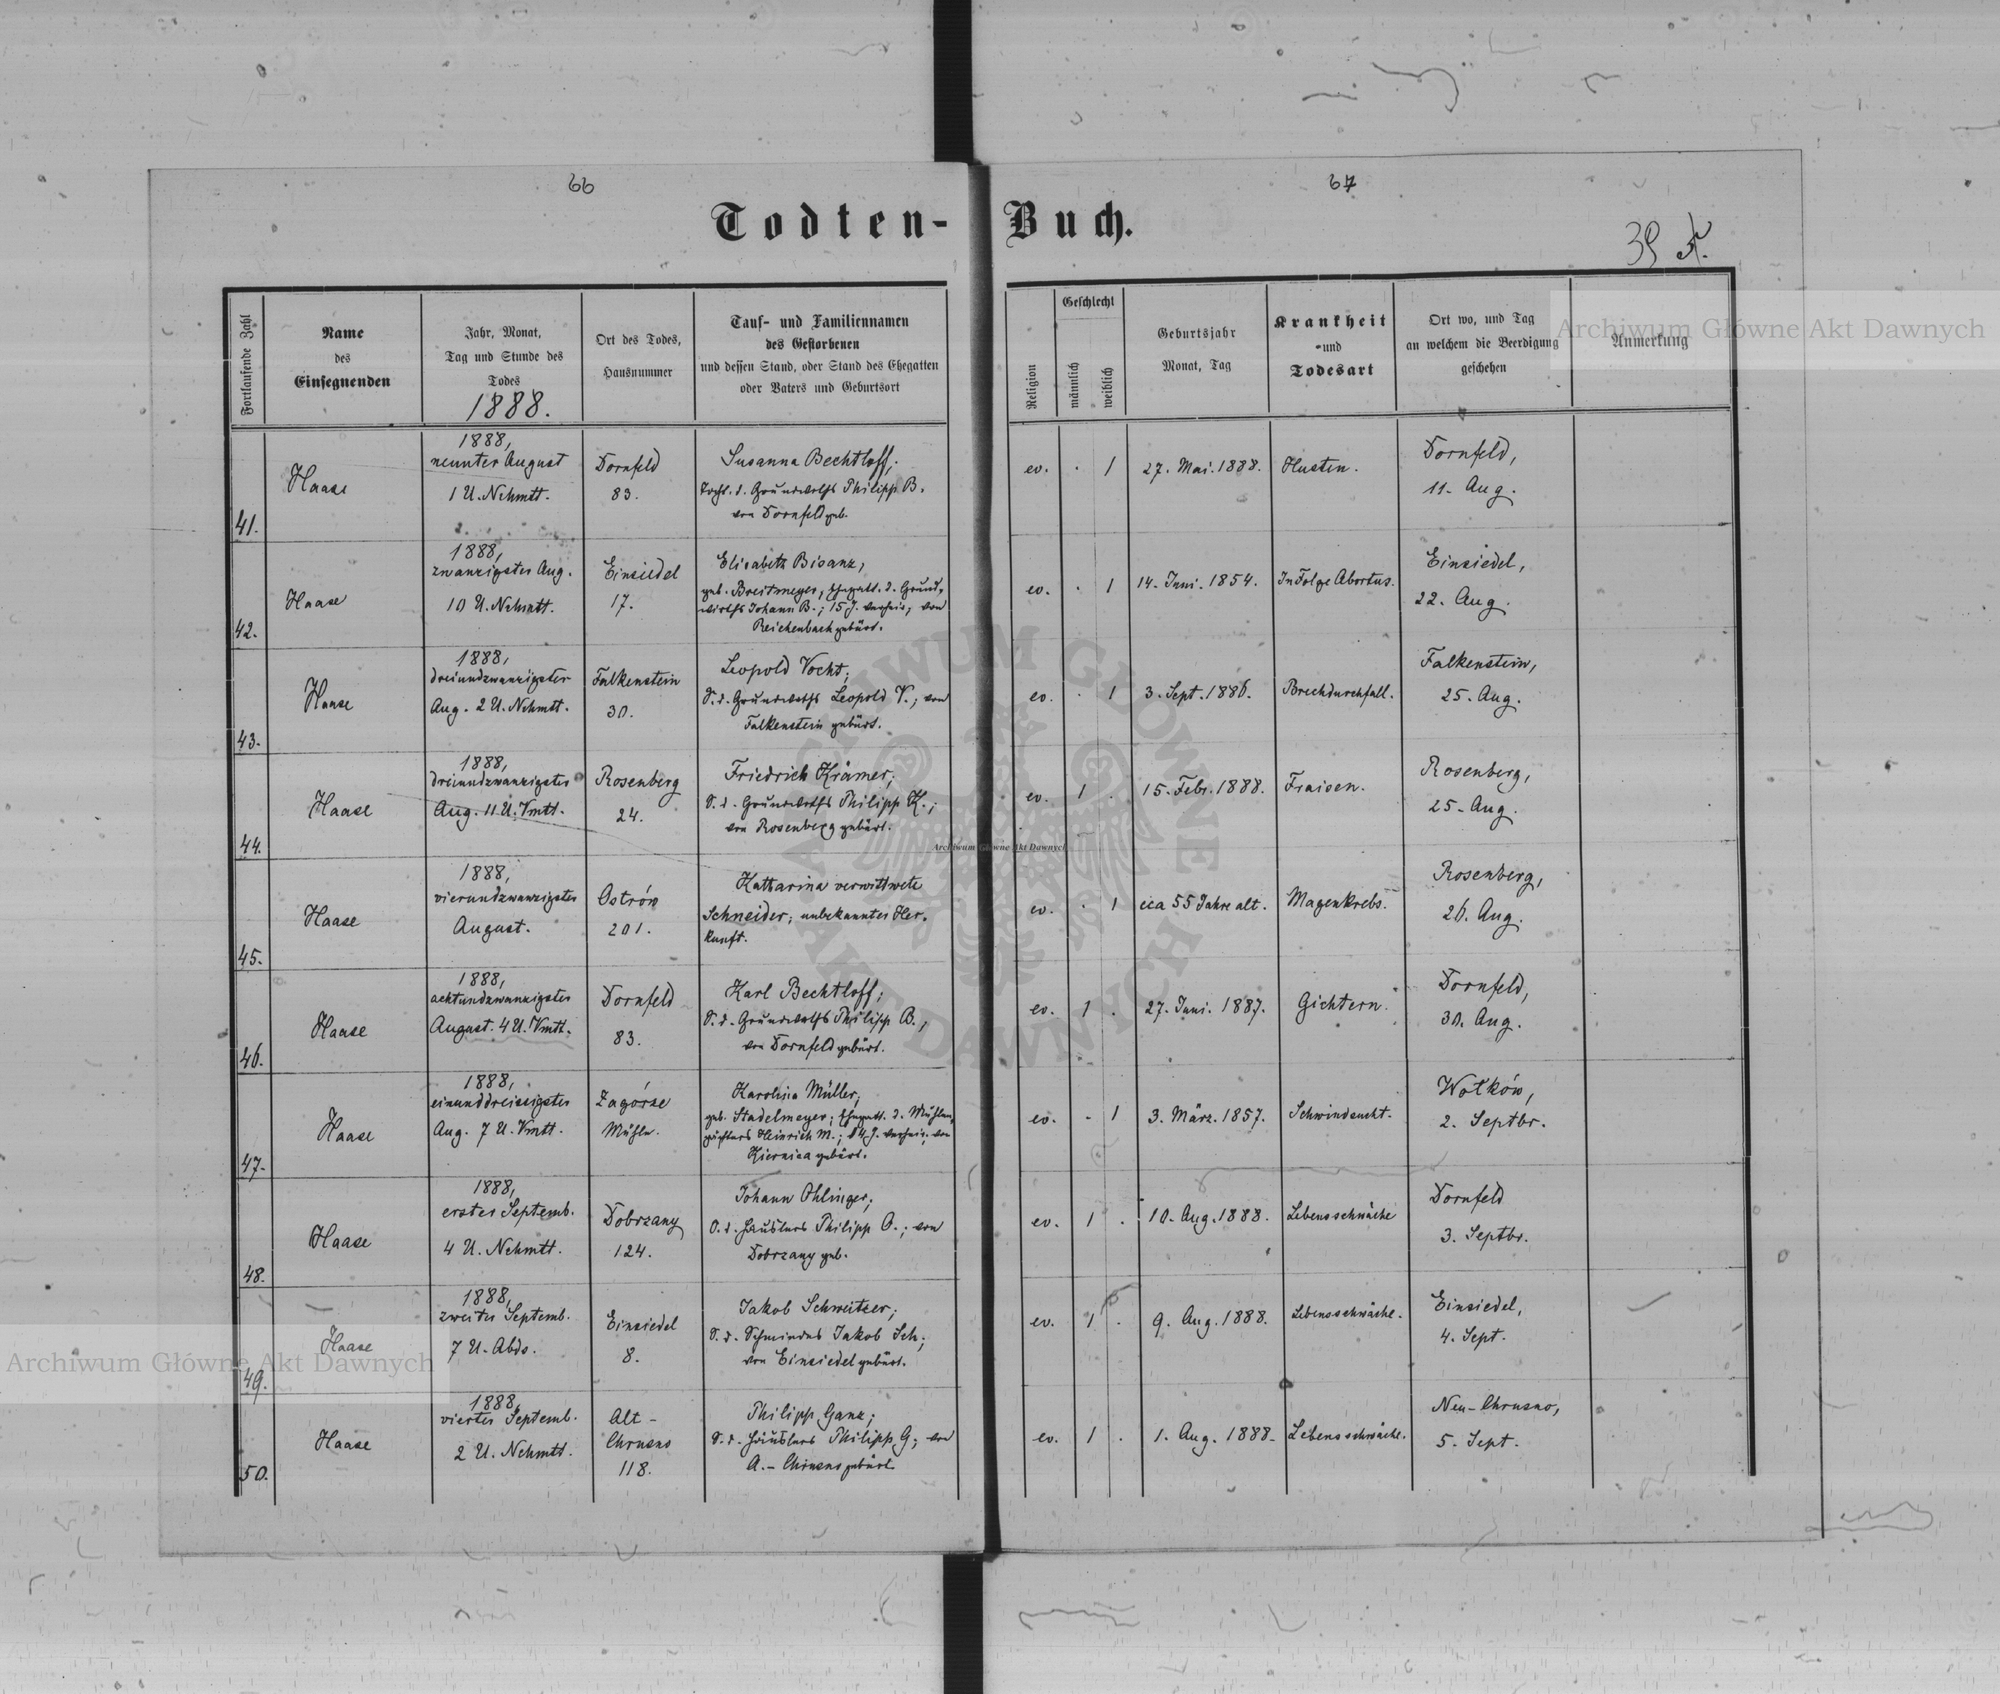 66
67
Todten-Buch.
39
Fortlaufende Zahl
Name
des
Einsegnenden
Jahr, Monat,
Tag und Stunde des
Todes
1888.
Ort des Todes,
Hausnummer
Tauf- und Familiennamen
des Gestorbenen
und dessen Stand, oder Stand des Ehegatten
oder Vaters und Geburtsort
Religion
Geschlecht
männlich
weiblich
Geburtsjahr
Monat, Tag
Krankheit
und
Todesart
Ort wo, und Tag
an welchem die Beerdigung
geschehen
Anmerkung
Archiwum Główne Akt Dawnych
41.
Haase
1888,
neunter August
1 U. Nchmtt.
Dornfeld
83.
Susanna Bechtloff;
Tocht. d. Grundwirths Philipp B.
von Dornfeld geb.
ev. . 1
27. Mai. 1888.
Husten.
Dornfeld,
11. Aug.
42.
Haase
1888,
zwanzigster Aug.
10 U. Nchmtt.
Einsiedel
17.
Elisabeth Bisanz,
geb. Breitmeyer, Ehegatt. d. Grund-
wirths Johann B.; 15 J. verheir., von
Reichenbach gebürt.
ev. . 1
14. Juni. 1854.
In Folge Abortus.
Einsiedel,
22. Aug.
43.
Haase
1888,
dreiundzwanzigster
Aug. 2 U. Nchmtt.
Falkenstein
30.
Leopold Vocht;
S. d. Grundwirths Leopold V.; von
Falkenstein gebürt.
ev. . 1
3. Sept. 1886.
Brechdurchfall.
Falkenstein,
25. Aug.
44.
Haase
1888,
dreiundzwanzigster
Aug. 11 U. Vmtt.
Rosenberg
24.
Friedrich Krämer;
S. d. Grundwirths Philipp K.;
von Rosenberg gebürt.
ev. 1 .
15. Febr. 1888.
Fraisen.
Rosenberg,
25. Aug.
Archiwum Główne Akt Dawnych
45.
Haase
1888,
vierundzwanzigster
August.
Ostrów
201.
Katharina verwittwete
Schneider; unbekannter Her-
kunft.
ev. . 1
cca 55 Jahre alt.
Magenkrebs.
Rosenberg,
26. Aug.
46.
Haase
1888,
achtundzwanzigster
August. 4 U. Vmtt.
Dornfeld
83.
Karl Bechtloff;
S. d. Grundwirths Philipp B.,
von Dornfeld gebürt.
ev. 1 .
27. Juni. 1887.
Gichtern.
Dornfeld,
30. Aug.
47.
Haase
1888,
einunddreissigster
Aug. 7 U. Vmtt.
Zagórze
Mühle.
Karolina Müller;
geb. Stadelmeyer; Ehegatt. d. Mühlen-
pächters Heinrich M.; 14 J. verheir. von
Kiernica gebürt.
ev. . 1
3. März. 1857.
Schwindsucht.
Wołków,
2. Septbr.
48.
Haase
1888,
erster Septemb.
4 U. Nchmtt.
Dobrzany
124.
Johann Ohlinger;
S. d. Häuslers Philipp O.; von
Dobrzany geb.
ev. 1 .
10. Aug. 1888.
Lebensschwäche
Dornfeld
3. Septbr.
49.
Haase
1888,
zweiter Septemb.
7 U. Abds.
Einsiedel
8.
Jakob Schweitzer;
S. d. Schmiedes Jakob Sch.;
von Einsiedel gebürt.
ev. 1 .
9. Aug. 1888.
Lebensschwäche.
Einsiedel,
4. Sept.
Archiwum Główne Akt Dawnych
50.
Haase
1888,
vierter Septemb.
2 U. Nchmtt.
Alt-
Chrusno
118.
Philipp Ganz;
S. d. Häuslers Philipp G; von
A.- Chrusno gebürt.
ev. 1 .
1. Aug. 1888.
Lebensschwäche.
Neu-Chrusno,
5. Sept.
ARCHIWUM GŁÓWNE AKT DAWNYCH